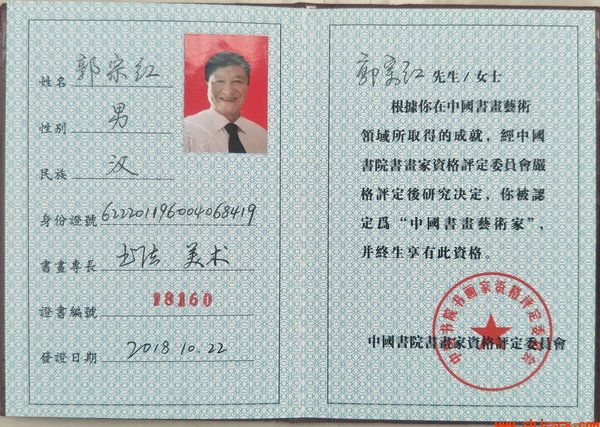 姓名 郭宗红
性别 男
民族 汉
身份證號 622201196004068419
書畫專長 书法 美术
證書編號 18160
發證日期 2018.10.22
郭宗红 先生/女士
根據你在中國書畫藝術
領域所取得的成就，經中國
書院書畫家資格評定委員會嚴
格評定後研究決定，你被認
定爲“中國書畫藝術家”，
并終生享有此資格。
中國書院書畫家資格評定委員會
中国书院书画家资格评定委员会